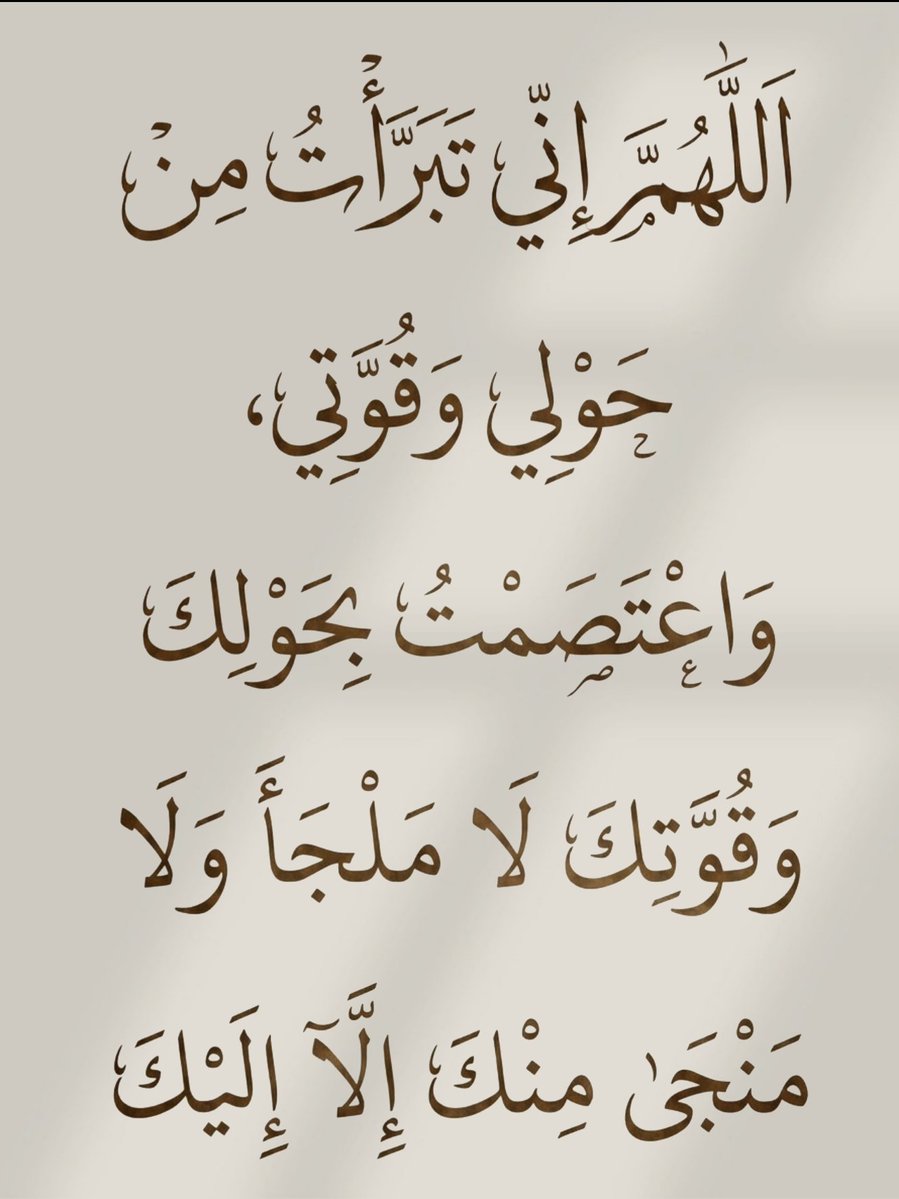 اَللَّهُمَّ إِنِّي تَبَرَّأْتُ مِنْ
حَوْلِي وَقُوَّتِي،
وَاعْتَصَمْتُ بِحَوْلِكَ
وَقُوَّتِكَ لَا مَلْجَأَ وَلَا
مَنْجَىٰ مِنْكَ إِلَّآ إِلَيْكَ